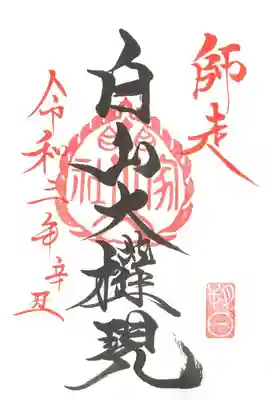 師走
白山大権現
令和三年辛丑
朔日